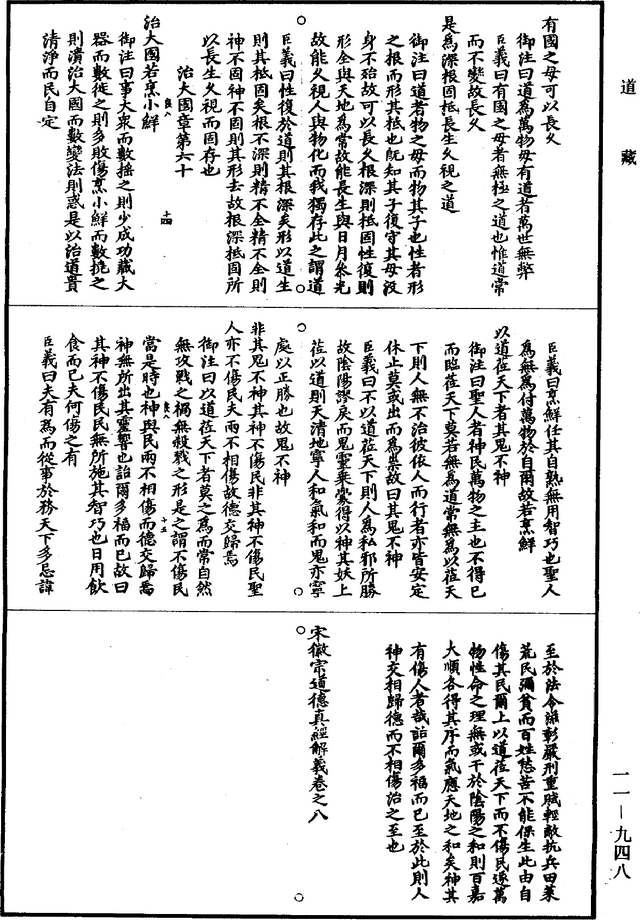 道藏
有國之母可以長久
御注曰道為萬物母有道者萬世無弊
臣義曰有國之母者無極之道也惟道常
而不變故長久
是為深根固柢長生久視之道
御注曰道者物之母而物其子也性者形
之根而形其柢也既知其子復守其母沒
身不殆故可以長久根深則柢固性復則
形全與天地為常故能長生與日月參光
故能久視人與物化而我獨存此之謂道
臣義曰性復於道則其根深矣形以道生
則其柢固矣根不深則精不全精不全則
神不固神不固則其形去故根深柢固所
以長生久視而固存也
治大國章第六十
治大國若烹小鮮
御注曰事大眾而數搖之則少成功藏大
器而數徙之則多敗傷烹小鮮而數撓之
則潰治大國而數變法則惑是以治道貴
清淨而民自定
十四
臣義曰烹鮮任其自熟無用智巧也聖人
為無為付萬物於自爾故若烹鮮
以道莅天下者其鬼不神
御注曰聖人者神民萬物之主也不得已
而臨莅天下莫若無為道常無為以莅天
下則人無不治彼依人而行者亦皆安定
休止莫或出而為祟故曰其鬼不神
臣義曰不以道莅天下則人為私邪所勝
故陰陽謬戾而鬼靈乘釁得以神其妖上
莅以道則天清地寧人和氣和而鬼亦寧
處以正勝也故鬼不神
非其鬼不神其神不傷民非其神不傷民聖
人亦不傷民夫兩不相傷故德交歸焉
御注曰以道莅天下者莫之為而常自然
無攻戰之禍無殺戮之形是之謂不傷民
當是時也神與民兩不相傷而德交歸焉
神無所出其靈響也詒爾多福而已故曰
其神不傷民民無所施其智巧也日用飲
食而已夫何傷之有
臣義曰夫有為而從事於務天下多忌諱
十五
至於法令滋彰嚴刑重賦輕敵抗兵田萊
荒民彌貧而百姓愁苦不能保生此由自
傷其民爾上以道莅天下而不傷民遂萬
物性命之理無或干於陰陽之和則百嘉
大順各得其序而氣應天地之和矣神其
有傷人者哉詒爾多福而已至於此則人
神交相歸德而不相傷治之至也
宋徽宗道德真經解義卷之八
一一—九四八